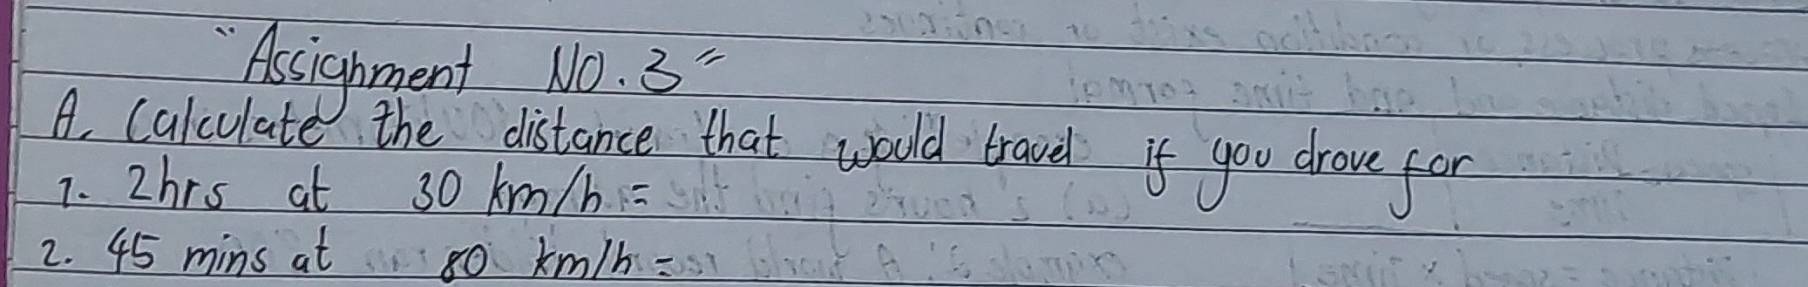 "Assignment NO. 3"
A. Calculate the distance that would travel if you drove for
1. 2hrs at 30 km/h =
2. 45 mins at 80 km/h =